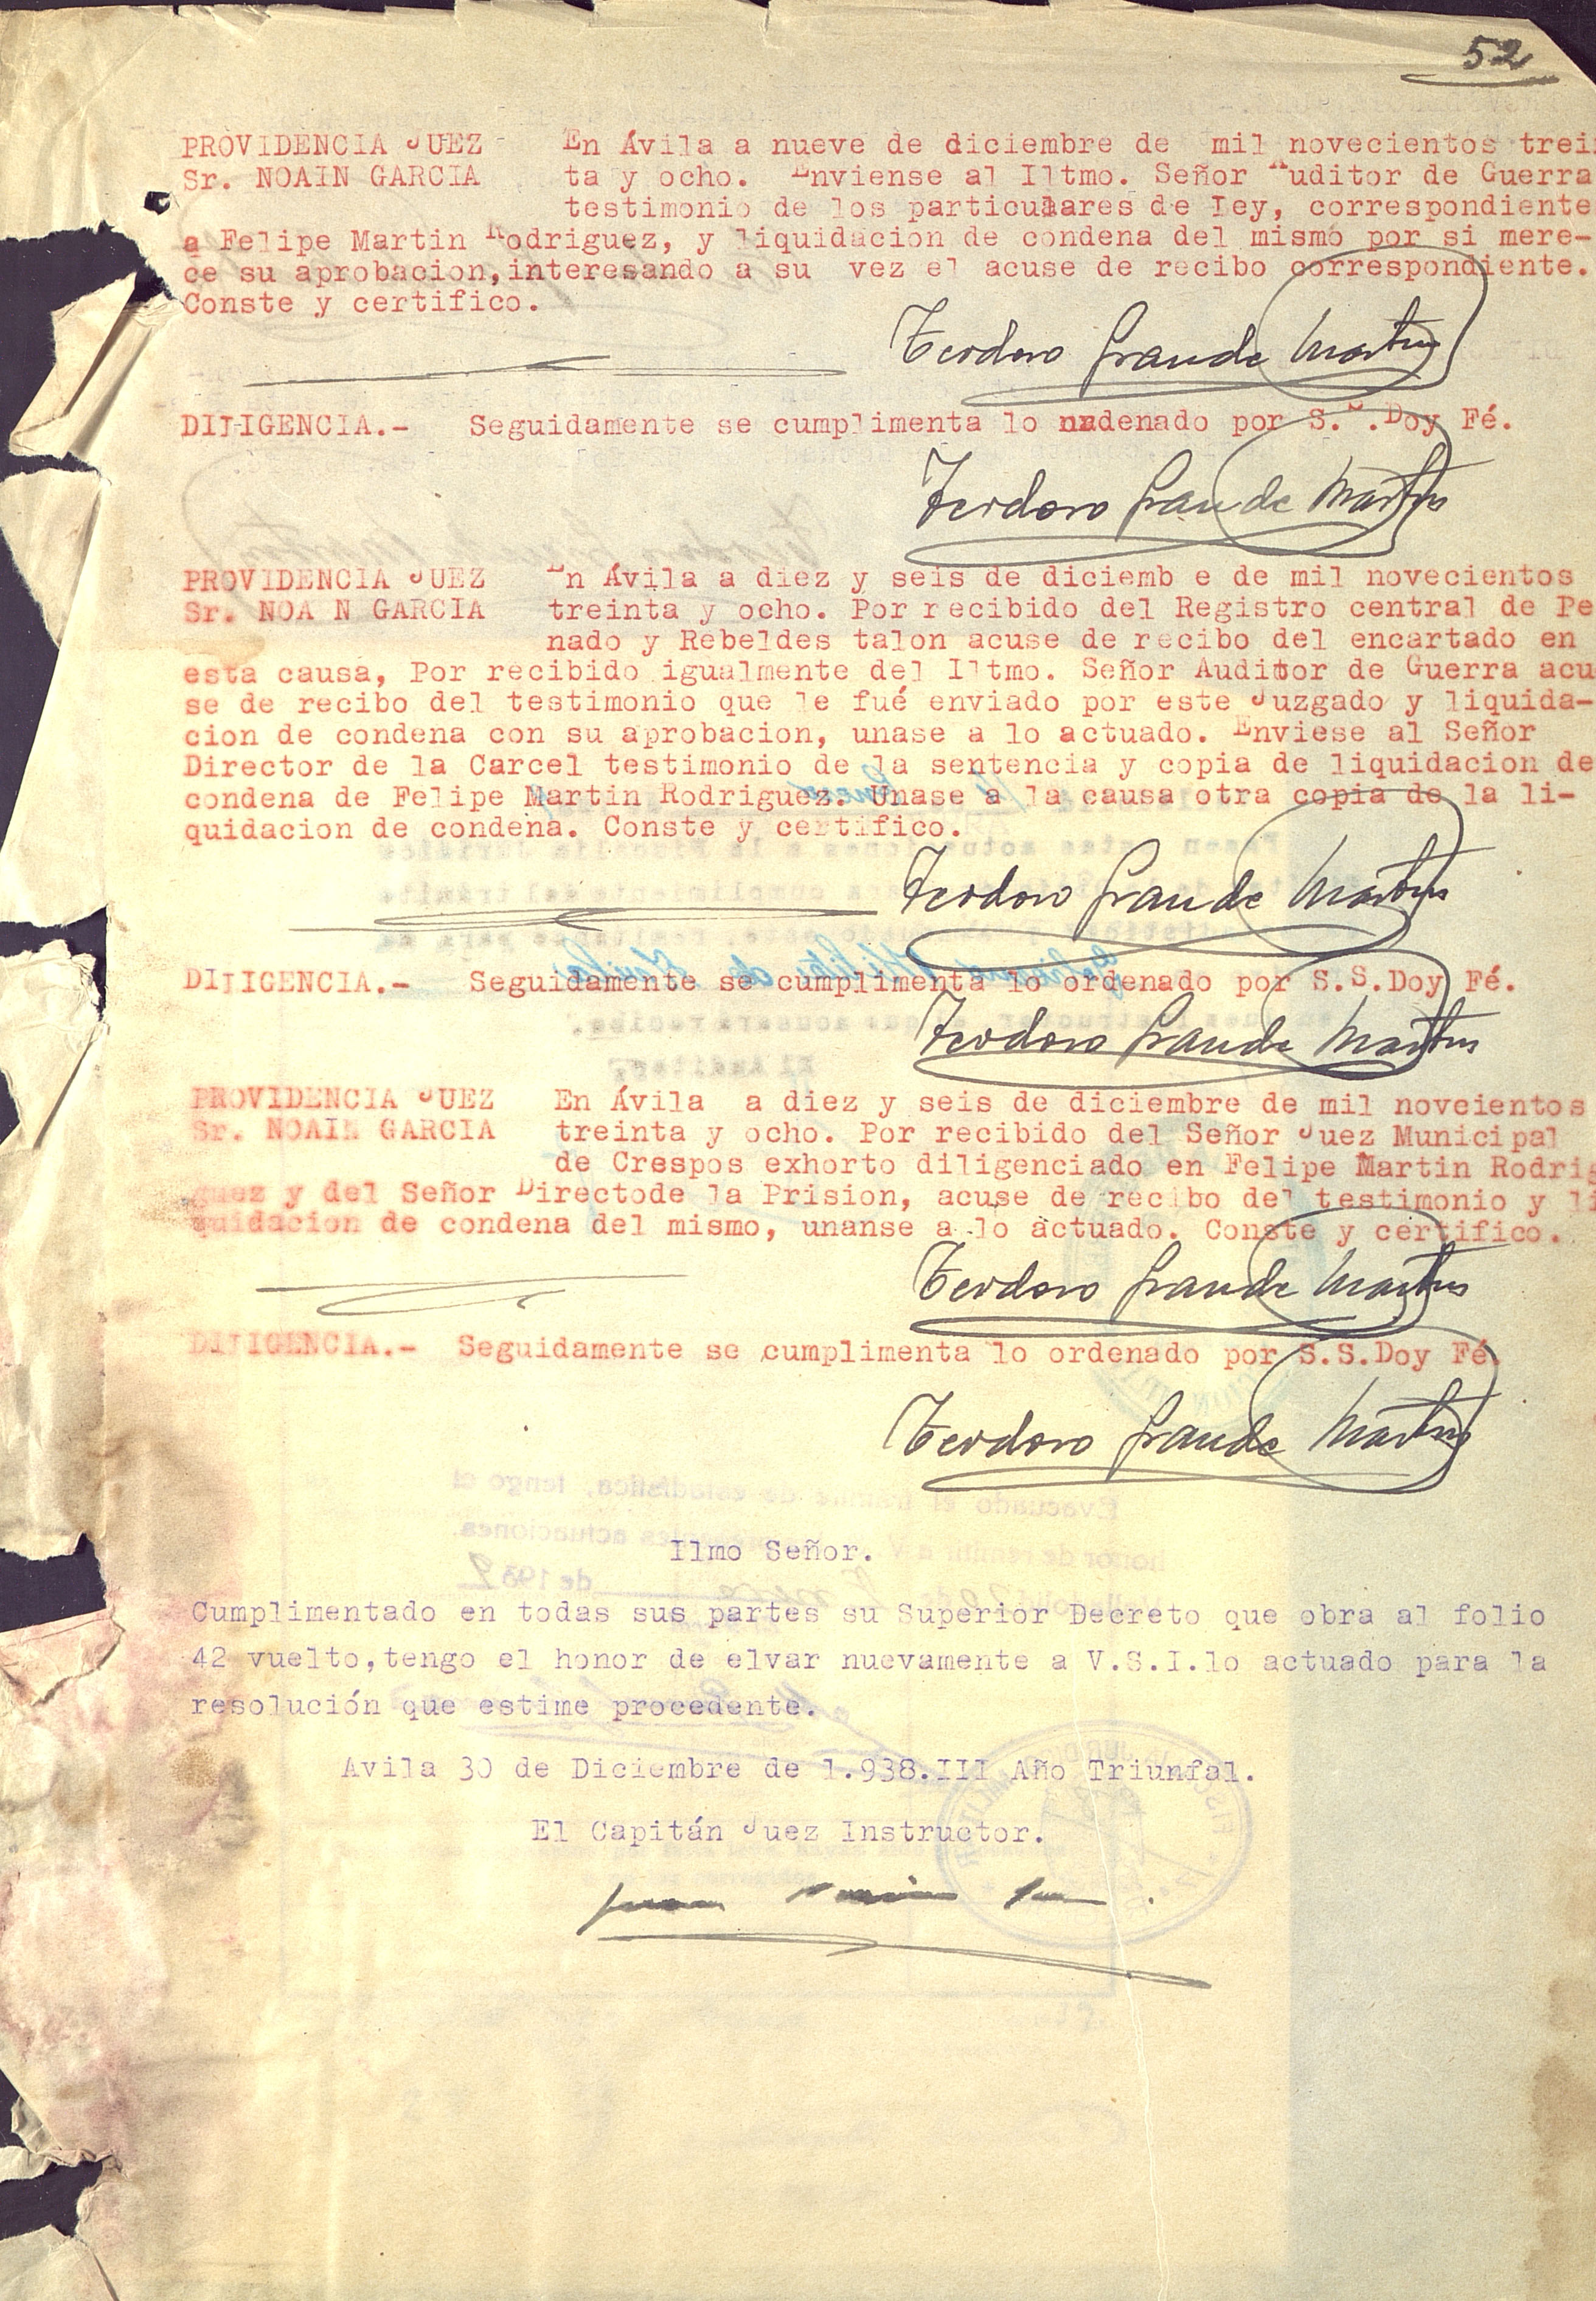 52
PROVIDENCIA JUEZ En Ávila a nueve de diciembre de mil novecientos trein
Sr. NOAIN GARCIA ta y ocho. Enviense al Iltmo. Señor Auditor de Guerra
testimonio de los particulares de Ley, correspondiente
a Felipe Martin Rodriguez, y liquidacion de condena del mismo por si mere-
ce su aprobacion,interesando a su vez el acuse de recibo correspondiente.
Conste y certifico.
Teodoro Grande Martin
DILIGENCIA.- Seguidamente se cumplimenta lo nrdenado por S.S.Doy Fé.
Teodoro Grande Martin
PROVIDENCIA JUEZ En Ávila a diez y seis de diciemb e de mil novecientos
Sr. NOA N GARCIA treinta y ocho. Por recibido del Registro central de Pe
nado y Rebeldes talon acuse de recibo del encartado en
esta causa, Por recibido igualmente del Iltmo. Señor Auditor de Guerra acu
se de recibo del testimonio que le fué enviado por este Juzgado y liquida-
cion de condena con su aprobacion, unase a lo actuado. Enviese al Señor
Director de la Carcel testimonio de la sentencia y copia de liquidacion de
condena de Felipe Martin Rodriguez. Unase a la causa otra copia de la li-
quidacion de condena. Conste y certifico.
Teodoro Grande Martin
DILIGENCIA.- Seguidamente se cumplimenta lo ordenado por S.S.Doy Fé.
Teodoro Grande Martin
PROVIDENCIA JUEZ En Ávila a diez y seis de diciembre de mil noveientos
Sr. NOAIN GARCIA treinta y ocho. Por recibido del Señor Juez Municipal
de Crespos exhorto diligenciado en Felipe Martin Rodrig
guez y del Señor Directode la Prision, acuse de recibo del testimonio y li
quidacion de condena del mismo, unanse a lo actuado. Conste y certifico.
Teodoro Grande Martin
DILIGENCIA.- Seguidamente se cumplimenta lo ordenado por S.S.Doy Fé.
Teodoro Grande Martin
Ilmo Señor.
Cumplimentado en todas sus partes su Superior Decreto que obra al folio
42 vuelto,tengo el honor de elvar nuevamente a V.S.I.lo actuado para la
resolución que estime procedente.
Avila 30 de Diciembre de 1.938.III Año Triunfal.
El Capitán Juez Instructor.